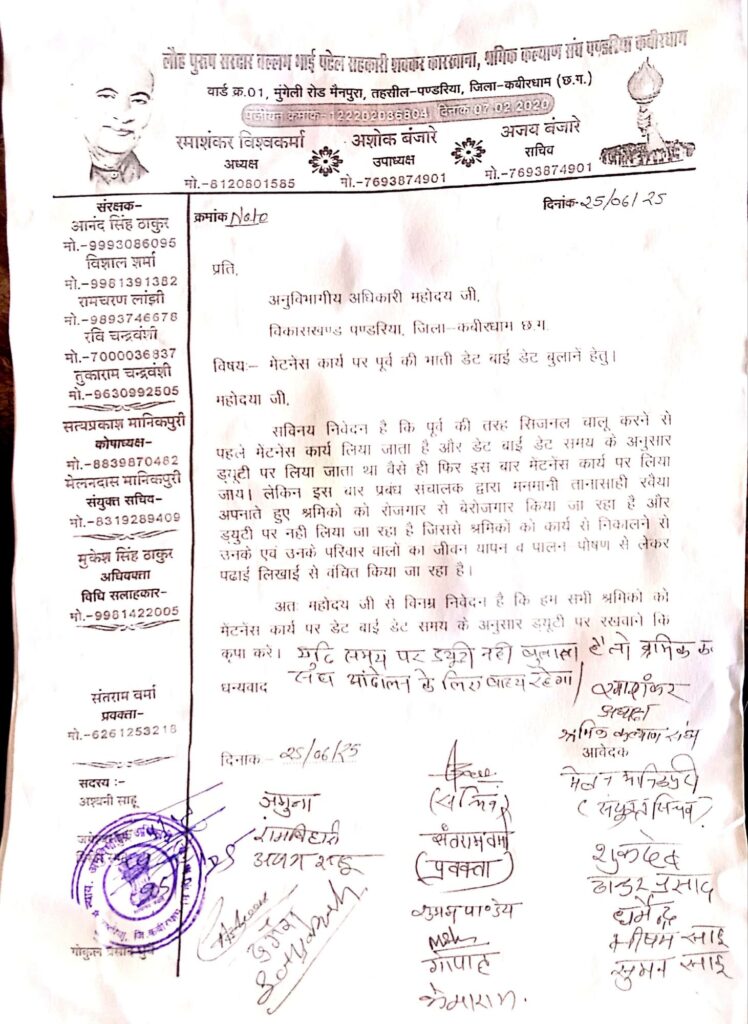 लौह पुरुष सरदार वल्लभ भाई पटेल सहकारी शक्कर कारखाना, श्रमिक कल्याण संघ पण्डरिया कबीरधाम
वार्ड क्र.01, मुंगेली रोड मैनपुरा, तहसील-पण्डरिया, जिला-कबीरधाम (छ.ग.)
पंजीयन क्रमांक-122202036804 दिनांक 07.02.2020
रमाशंकर विश्वकर्मा
अध्यक्ष
मो.-8120801585
अशोक बंजारे
उपाध्यक्ष
मो.-7693874901
अजय बंजारे
सचिव
मो.-7693874901
संरक्षक-
आनंद सिंह ठाकुर
मो.-9993086095
विशाल शर्मा
मो.-9981391382
रामचरण लांझी
मो.-9893746678
रवि चन्द्रवंशी
मो.-7000036837
तुकाराम चन्द्रवंशी
मो.-9630992505
सत्यप्रकाश मानिकपुरी
कोषाध्यक्ष-
मो.-8839870482
मेलनदास मानिकपुरी
संयुक्त सचिव-
मो.-8319289409
मुकेश सिंह ठाकुर
अधिवक्ता
विधि सलाहकार-
मो.-9981422005
संतराम वर्मा
प्रवक्ता-
मो.-6261253218
सदस्य :-
अश्वनी साहू
क्रमांक Note
दिनांक-25/06/25
प्रति,
अनुविभागीय अधिकारी महोदय जी,
विकासखण्ड पण्डरिया, जिला-कबीरधाम छ.ग.
विषय:- मेटनेंस कार्य पर पूर्व की भाती डेट बाई डेट बुलानें हेतु।
महोदया जी,
सविनय निवेदन है कि पूर्व की तरह सिजनल चालू करने से
पहले मेटनेस कार्य लिया जाता है और डेट बाई डेट समय के अनुसार
ड्युटी पर लिया जाता था वैसे ही फिर इस बार मेटनेस कार्य पर लिया
जाय। लेकिन इस बार प्रबंध सचालक द्वारा मनमानी तानासाही रवैया
अपनाते हुए श्रमिकों को रोजगार से बेरोजगार किया जा रहा है और
ड्युटी पर नही लिया जा रहा है जिससे श्रमिकों को कार्य से निकालने से
उनके एवं उनके परिवार वालों का जीवन यापन व पालन पोषण से लेकर
पढाई लिखाई से वंचित किया जा रहा है।
अतः महोदय जी से विनम्र निवेदन है कि हम सभी श्रमिकों को
मेंटनेंस कार्य पर डेट बाई डेट समय के अनुसार ड्युटी पर रखवाने कि
कृपा करें। यदि समय पर ड्युटी नही बुलाता है तो श्रमिक क
धन्यवाद संघ आंदोलन के लिए बाध्य रहेगा
रमाशंकर
अध्यक्ष
श्रमिक कल्याण संघ
आवेदक
दिनांक - 25/06/25
मेलन मानिकपुरी
(संयुक्त सचिव)
जमुना
(सचिव)
रामबिहारी
संतराम वर्मा
(प्रवक्ता)
शुकदेव
ठाकुर प्रसाद
धर्मेन्द्र
भीषम साहू
सुमन साहू
गोपाल